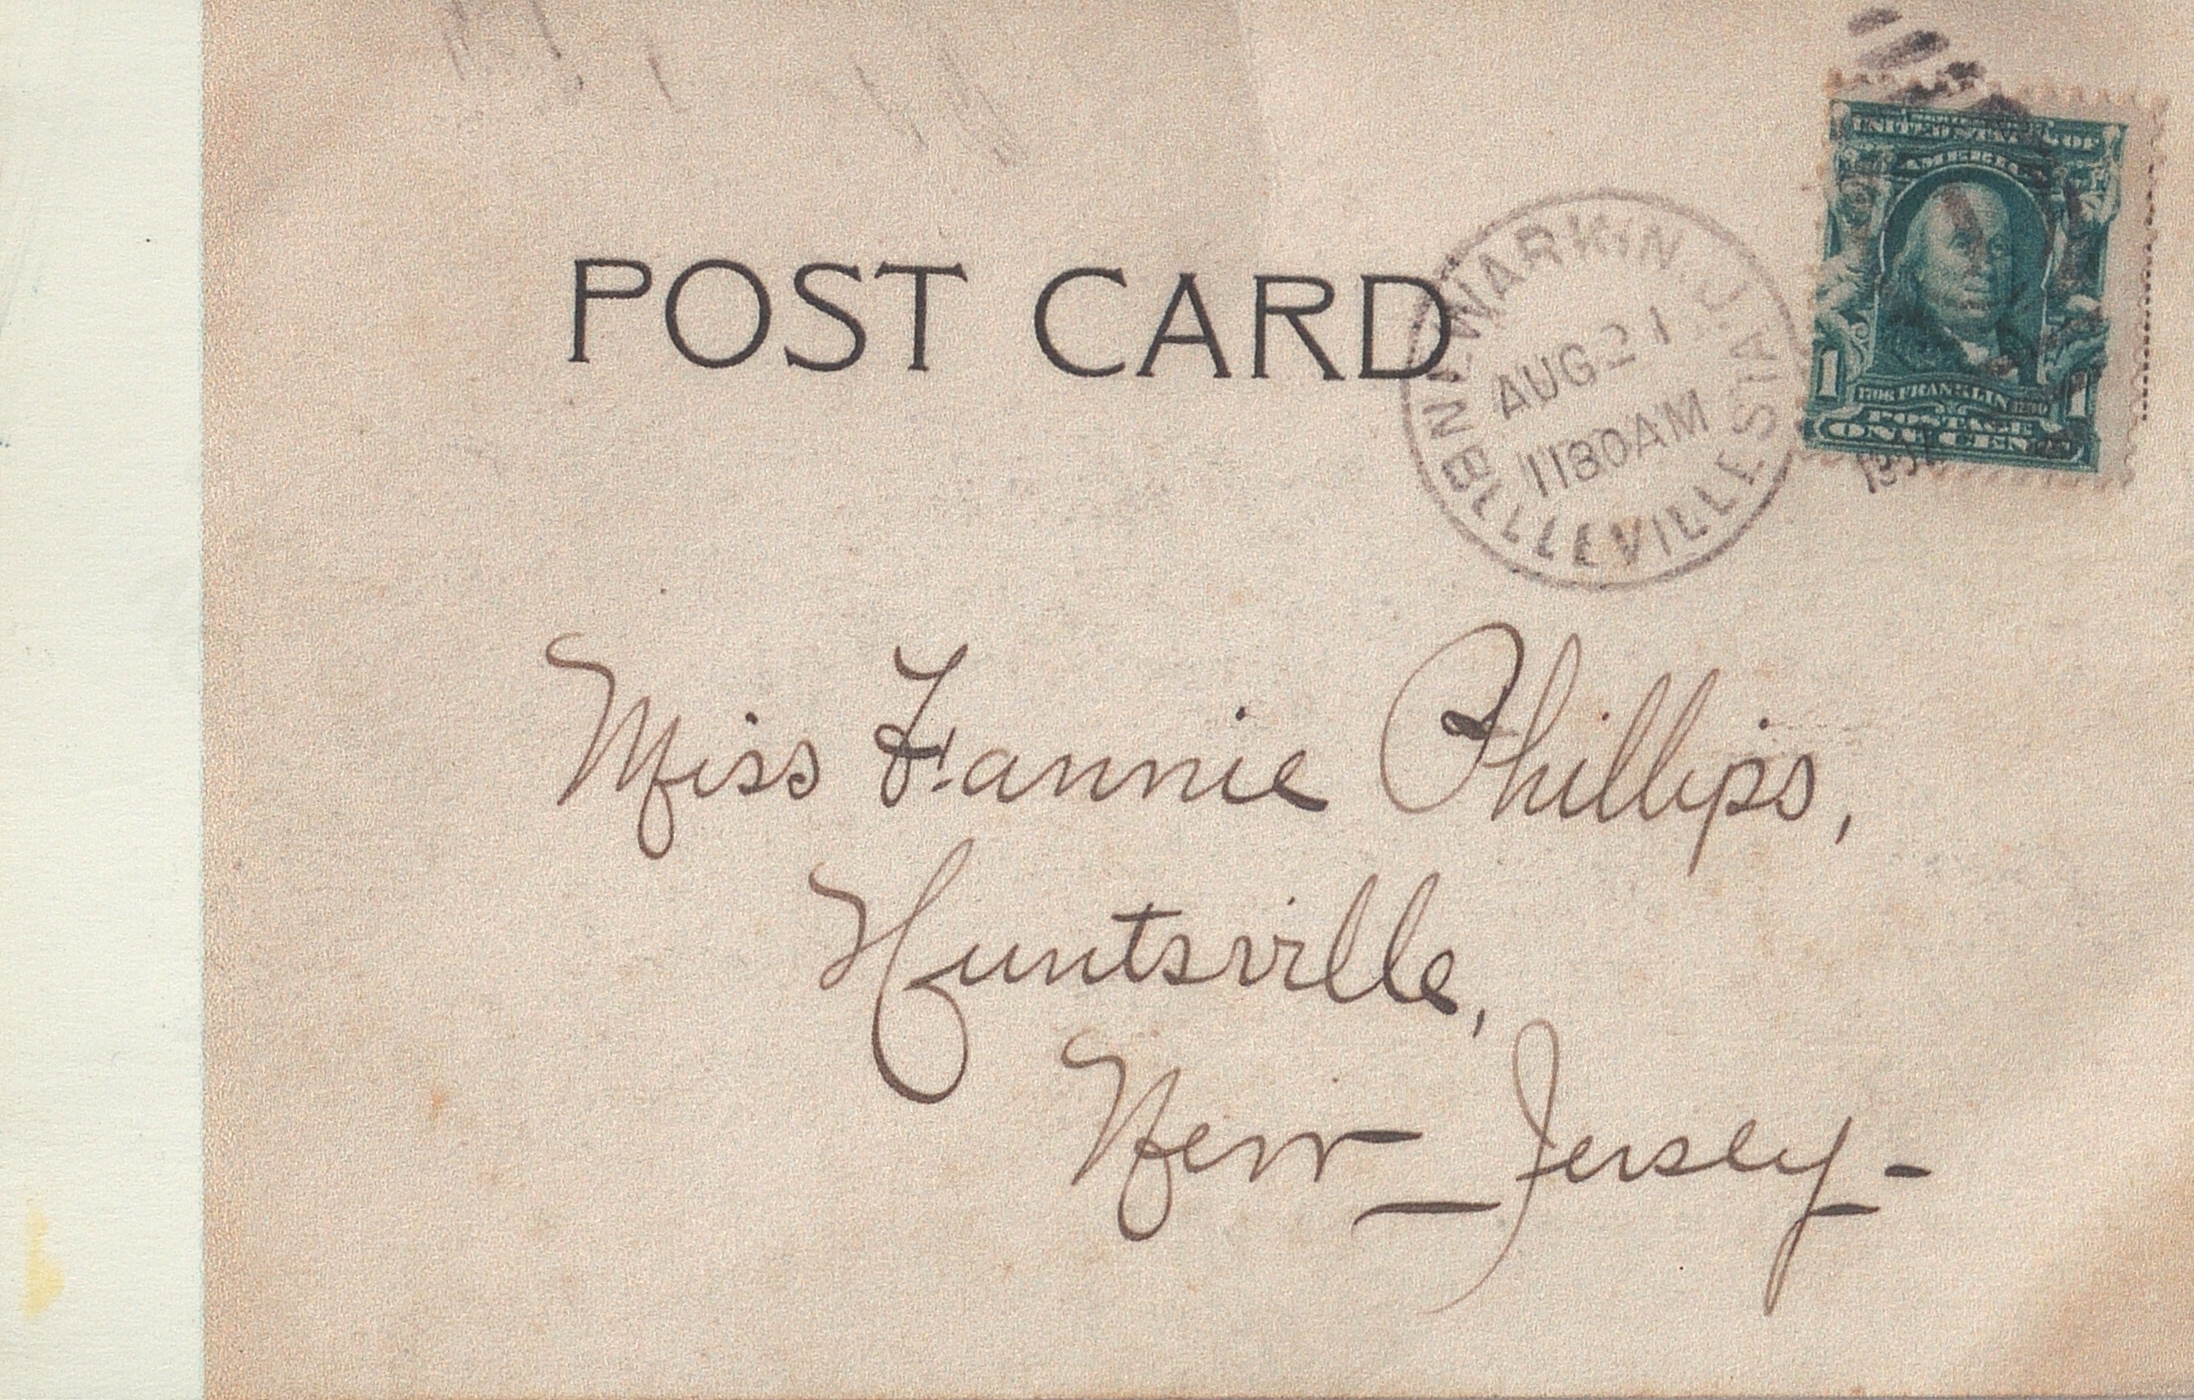 POST CARD
NEWARK, N.J.
BELLEVILLE STA.
AUG 21
1130AM
190
UNITED STATES OF
AMERICA
1706 FRANKLIN 1790
1 1
POSTAGE
ONE CENT
Miss Fannie Phillips,
Huntsville,
New Jersey